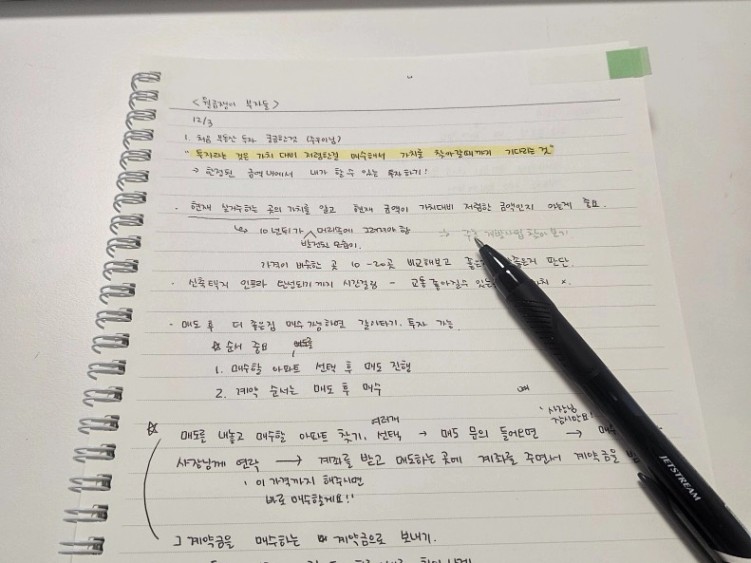 <월급쟁이 부자들>
12/3
1. 처음 부동산 투자 궁금한것 (수우미님)
"투자라는 것은 가치 대비 저렴한걸 매수해서 가치를 찾아갈때까지 기다리는 것"
→ 한정된 금액 내에서 내가 할 수 있는 투자하기!
· 현재 실거주하는 곳의 가치를 알고 현재 금액이 가치대비 저렴한 금액인지 아는게 중요.
↳ 10년뒤가 머릿속에 그려져야 함 →
발전된 모습이.
가격이 비슷한 곳 10-20곳 비교해보고 판단.
· 신축택지 인프라 완성되기까지 시간걸림 - 교통 좋아질수 있는 x.
· 매도 후 더 좋은집 매수 가능하면 갈아타기. 투자 가능
☆ 순서 중요
1. 매수할 아파트 선택 후 매도 진행
2. 계약 순서는 매도 후 매수
☆ 매도를 내놓고 매수할 아파트 여러개 찾기, 선택 → 매도 문의 들어오면 →
"사장님
사장님께 연락 → 계좌를 받고 매도하는 곳에 계좌를 주면서 계약금을
"이 가격까지 해주시면
바로 매수할게요!"
] 계약금을 매수하는 계약금으로 보내기.
JETSTREAM